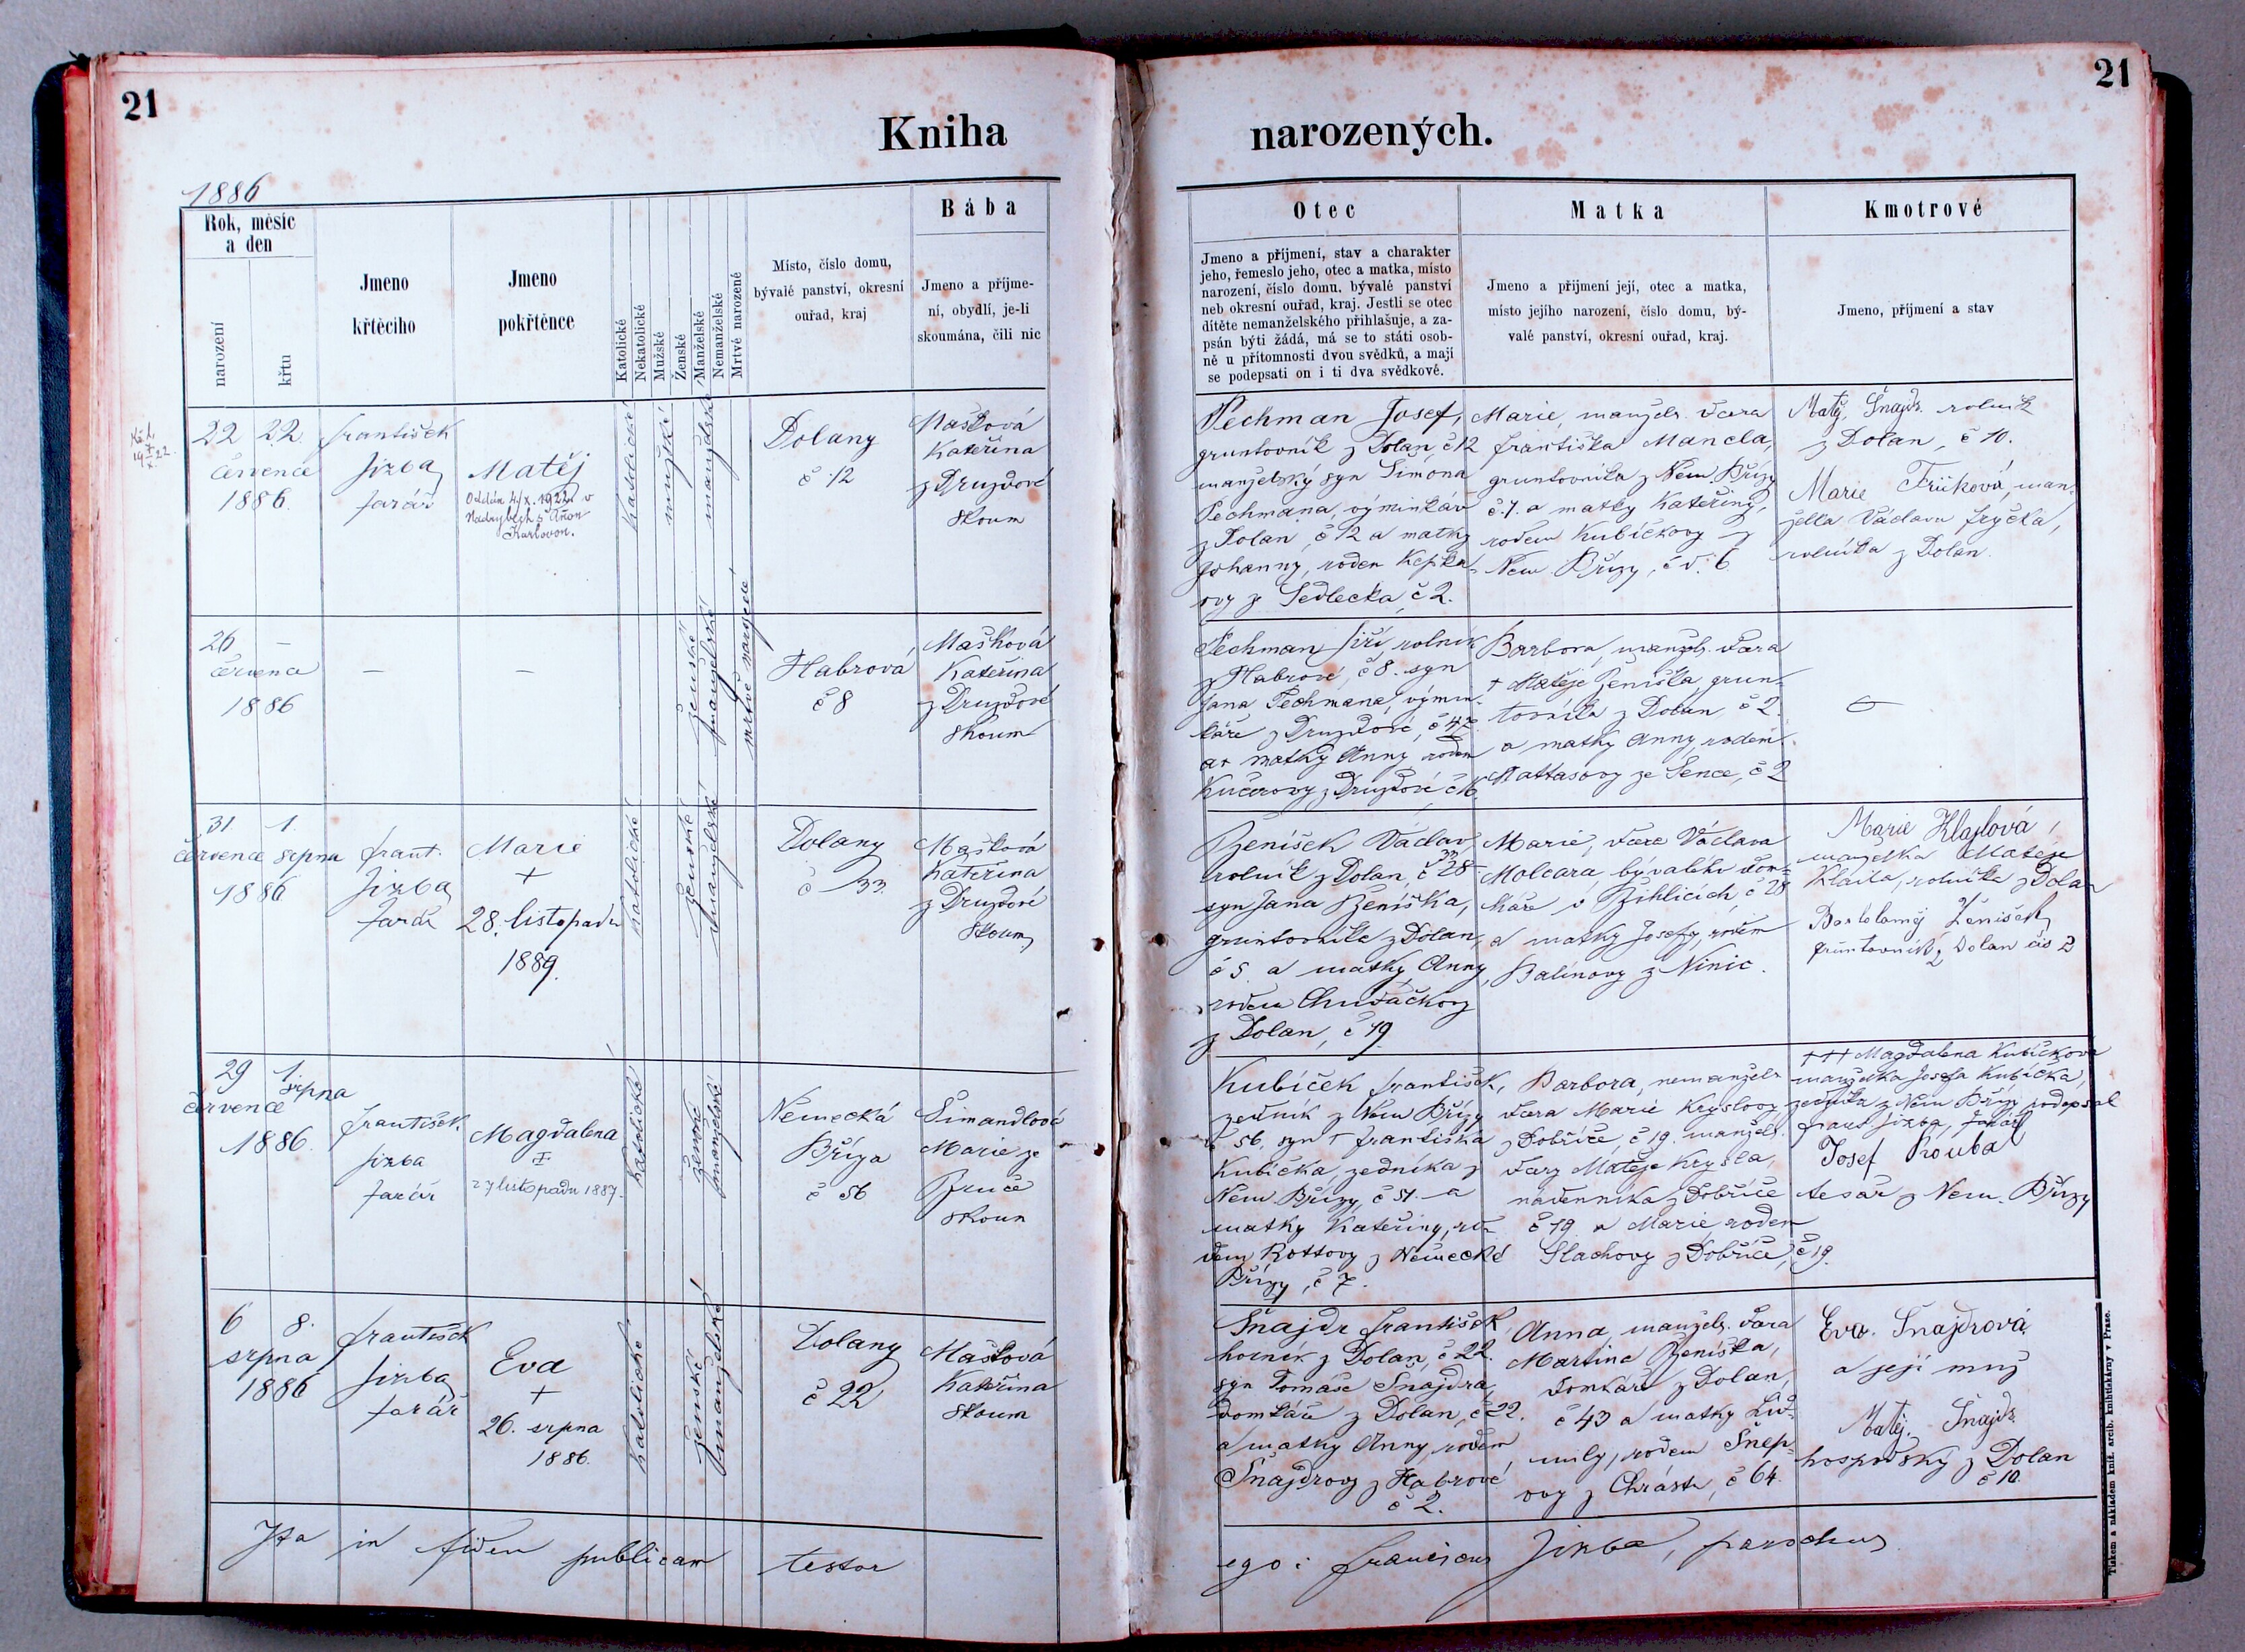 21
21
Kniha
narozených.
1886
Rok, měsíc
a den
narození
křtu
Jmeno
křtěcího
Jmeno
pokřtěnce
Katolické
Nekatolické
Mužské
Ženské
Manželské
Nemanželské
Mrtvě narozené
Místo, číslo domu,
bývalé panství, okresní
ouřad, kraj
Bába
Jmeno a příjme-
ní, obydlí, je-li
skoumána, čili nic
Otec
Jmeno a příjmení, stav a charakter
jeho, řemeslo jeho, otec a matka, místo
narození, číslo domu, bývalé panství
neb okresní ouřad, kraj. Jestli se otec
dítěte nemanželského přihlašuje, a za-
psán býti žádá, má se to státi osob-
ně u přítomnosti dvou svědků, a mají
se podepsati on i ti dva svědkové.
Matka
Jmeno a přijmení její, otec a matka,
místo jejího narození, číslo domu, bý-
valé panství, okresní ouřad, kraj.
Kmotrové
Jmeno, příjmení a stav
22 22.
července
1886.
František
Jirba
farář
Matěj
Oddán 4/X. 1922 v
Nadrybech s Annou
Karlovou.
katolické
mužské
manželské
Dolany
č 12
Mašková
Kateřina
z Druzdové
skoum
Pechman Josef,
gruntovník z Dolan, č 12
manželský syn Šimona
Pechmana, výminkáře
z Dolan, č 12 a matky
Johanny, rodem
ovy ze Sedlecka, č 2.
Marie, manžels. dcera
Františka Mancla,
gruntovníka z Něm. Břízy
č. 7. a matky Kateřiny,
rodem Kubíčkovy z
Něm. Břízy, č d. 6.
Matěj Šnajdr rolník
z Dolan, č 10.
Marie Fričková, man-
želka Václava Fryčka,
rolníka z Dolan.
26 –
července
1886
–
–
ženské
manželské
mrtvě narozené
Habrová
č 8
Mašková
Kateřina
z Druzdové
skoum
Pechman Jiří, rolník
z Habrové, č 8. syn
Jana Pechmana, výmin-
káře z Druzdové, č 42
a matky Anny, rodem
Kučerovy z Druzdové č 16.
Barbora, manžels. dcera
† Matěje Ženíška, grun-
tovníka z Dolan, č 2.
a matky Anny, rodem
Mattasovy ze Sence, č 2
31 1.
července srpna
1886
Frant.
Jirba
farář
Marie
+
28. listopadu
1889.
katolické
ženské
manželské
Dolany
č 33.
Mašková
Kateřina
z Druzdové
skoum
Ženíšek Václav
33
rolník z Dolan, č 28
syn Jana Ženíška,
gruntovníka z Dolan,
č 5. a matky Anny,
rodem Chudáčkovy
z Dolan, č 19.
Marie, dcera Václava
Molcara, bývalého dom-
káře v Žihlicích, č 28
a matky Josefy, rodem
Balínovy z Ninic.
Marie Klajlová,
manželka Matěje
rolníka z Dolan
Bartoloměj Ženíšek
gruntovník z Dolan čís 2
29 1.
července srpna
1886.
František
Jirba
farář
Magdalena
+
27 listopadu 1887.
katolické
ženské
manželské
Německá
Bříza
č 56
Šimandlová
Marie ze
skoum
Kubíček František,
zedník z Něm Břízy
č 56, syn † Františka
Kubíčka, zedníka z
Něm. Břízy, č 51. a
matky Kateřiny, ro-
dem Rottovy z Německé
Břízy, č 7.
Barbora, nemanžels.
dcera Marie Kryslovy
z Dobříče, č 19. manžels.
dcery Matěje Krysla,
nádenníka z Dobříče
č 19 a Marie rodem
Slachovy z Dobříče, č 19.
+++ Magdalena Kubíčkova
manželka Josefa Kubíčka,
zedníka z Něm Břízy podepsal
Frant Jirba, farář
Josef Rouba
tesař z Něm. Břízy
6 8.
srpna
1886
František
Jirba
farář
Eva
+
26. srpna
1886.
katolické
ženské
manželské
Dolany
č 22
Mašková
Kateřina
skoum
Šnajdr František,
horník z Dolan, č 22.
syn Tomáše Šnajdra,
domkáře z Dolan, č 22.
a matky Anny, rodem
Šnajdrovy z Habrové
č 2.
Anna, manžels. dcera
Martina Ženíška,
domkáře z Dolan,
č 43 a matky Lud-
mily, rodem Šnep-
ovy z Chrástu, č 64.
Eva Šnajdrová
a její muž
Matěj Šnajdr
hospodský z Dolan
č 10.
Ita in fidem publicam testor
ego: Franciscus Jirba, parochus
Tiskem a nákladem kníž. arcib. knihtiskárny v Praze.